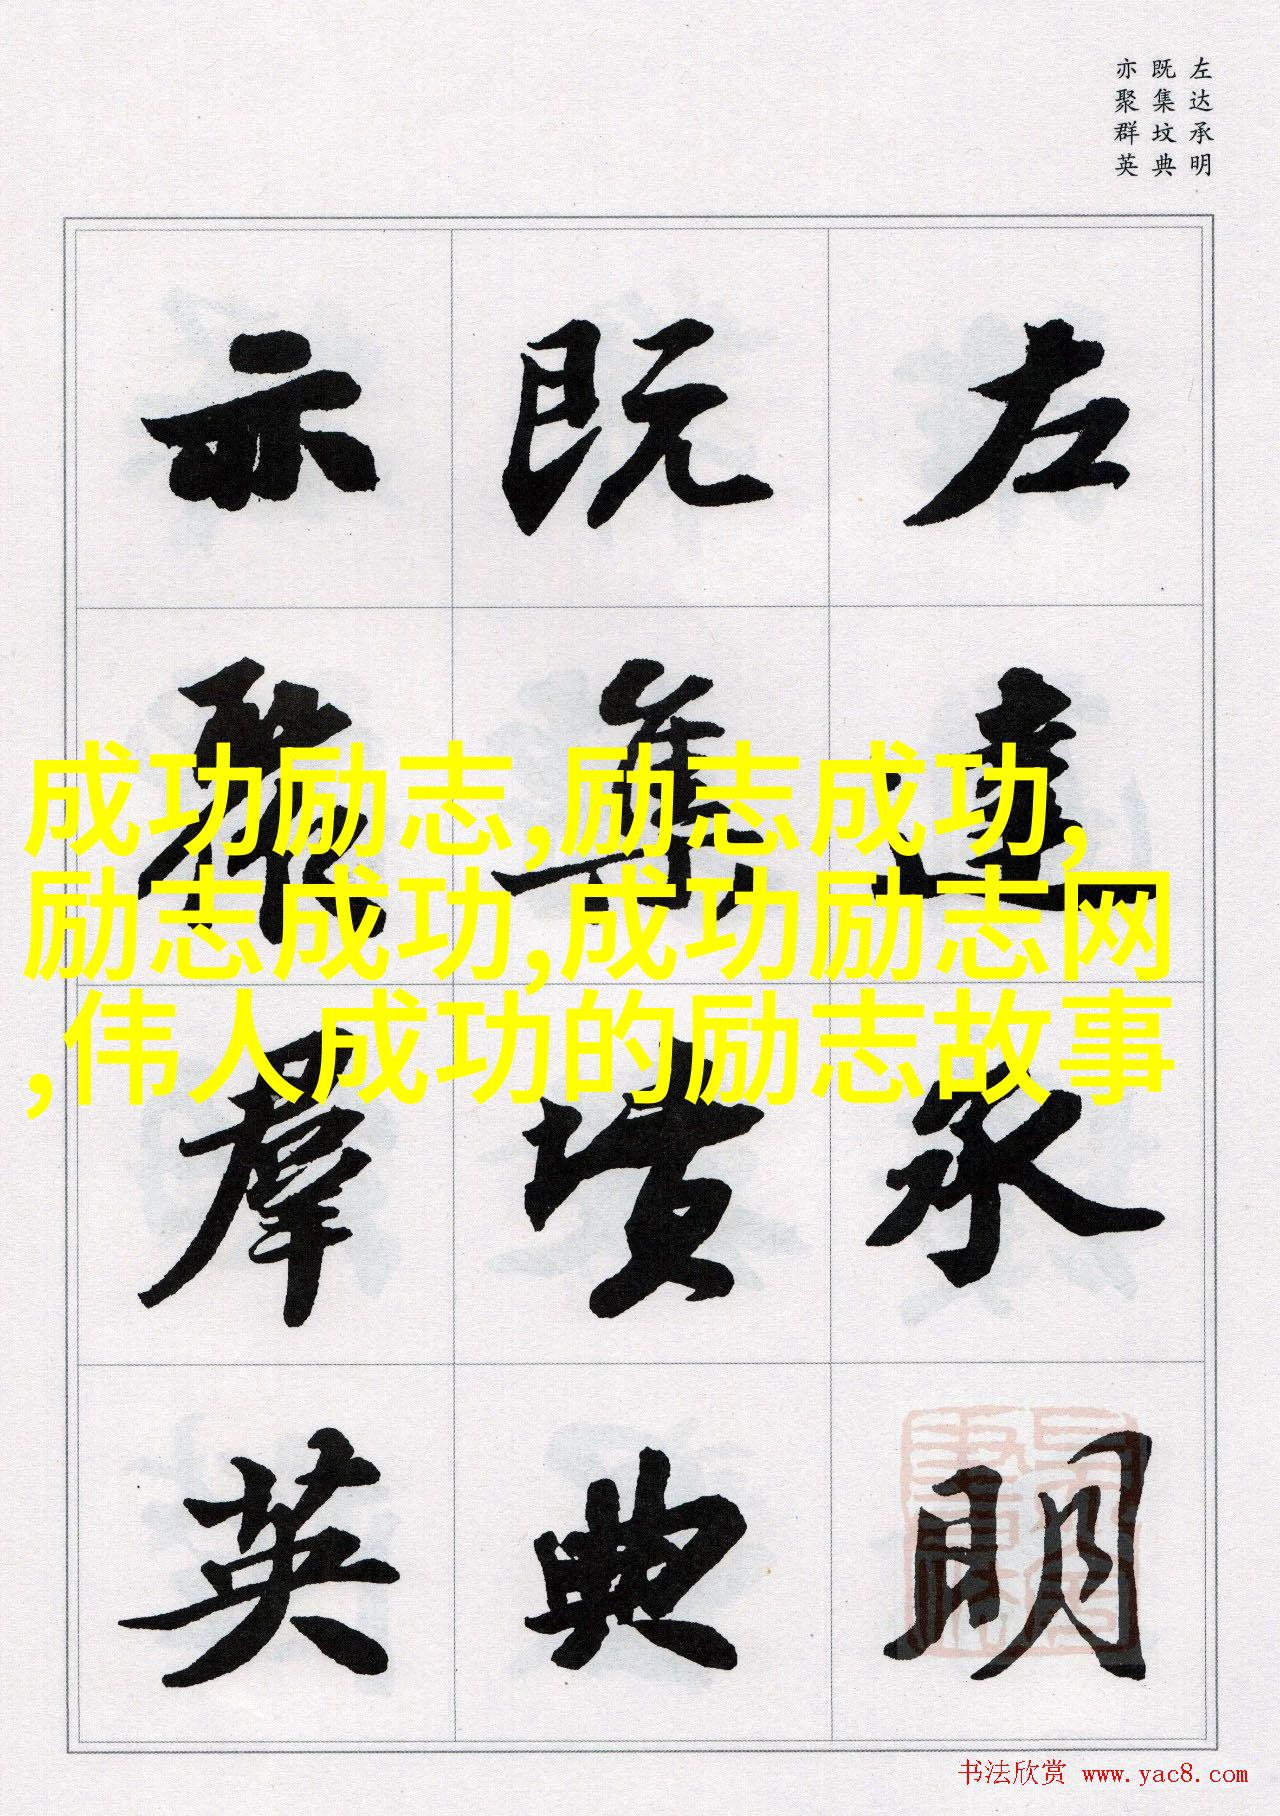 左达承明
既集坟典
亦聚群英
左達承明
既集墳典
亦聚羣英
成功励志,励志成功,
励志成功,成功励志网
,伟人成功的励志故事
书法欣赏 www.yac8.com